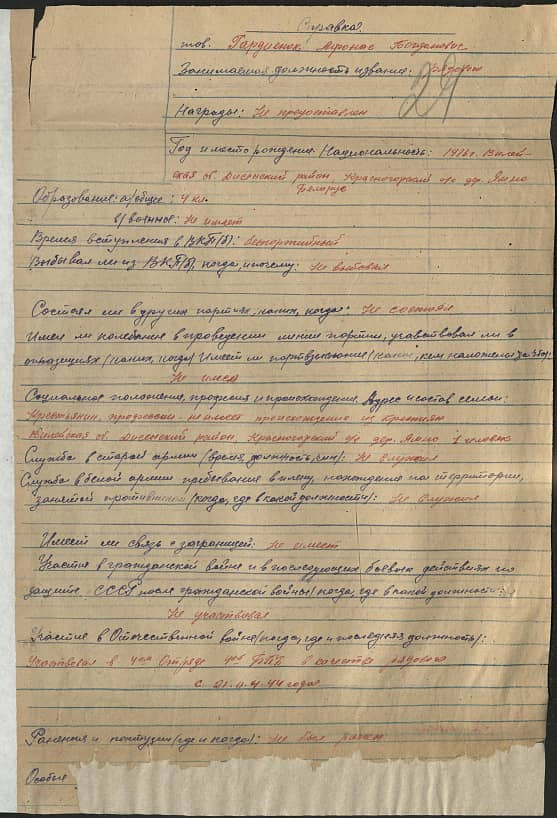 Справка
тов. Гардиенок Афонас Богданович
Занимаемая должность и звание: рядовой
24
Награды: Не предоставлен
Год и место рождения, Национальность: 1916г. Вилей-
ская об. Дисенский район, Красногорский с/с дер. Ямно
Беларус
Образование: а/общее: 4 кл.
в/военное: Не имеет
Время вступления в ВКП/б/: беспартийный
Выбывал ли из ВКП/б/, когда, и почему: Не выбывал
Состоял ли в других партиях, каких, когда: Не состоял
Имел ли колебания в проведении линии партии, участвовал ли в
оппозициях /каких, когда/ Имеет ли партвзыскание /какие, кем наложено, за что/:
Не имел
Социальное положение, профессия и происхождение. Адрес и состав семьи:
Крестьянин, професии не имеет происхождение из крестиян
Вилейская об. Дисенский район, Красногорский с/с дер. Ямно 1 человек
Служба в старой армии /время, должность, чин/: Не служил
Служба в белой армии пребывания в плену, нахождение на территории,
занятой противником /когда, где в какой должности/: Не служил
Имеет ли связь с заграницей: Не имеет
Участия в гражданской войне и в последующих боевых действиях по
защите СССР после гражданской войны /когда, где в какой должности:
Не участвовал
Участие в Отечественной войне /когда, где и последняя должность/:
Участвовал в 4ом Отряде 4ой БПБ в качестве рядовой
с 21.4.44 года
Ранения и контузии /где и когда/: Не был ранен
Особые